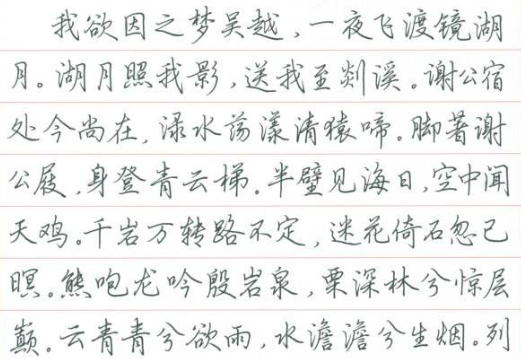 我欲因之梦吴越,一夜飞渡镜湖
月。湖月照我影,送我至剡溪。谢公宿
处今尚在,渌水荡漾清猿啼。脚著谢
公屐,身登青云梯。半壁见海日,空中闻
天鸡。千岩万转路不定,迷花倚石忽已
暝。熊咆龙吟殷岩泉,栗深林兮惊层
巅。云青青兮欲雨,水澹澹兮生烟。列